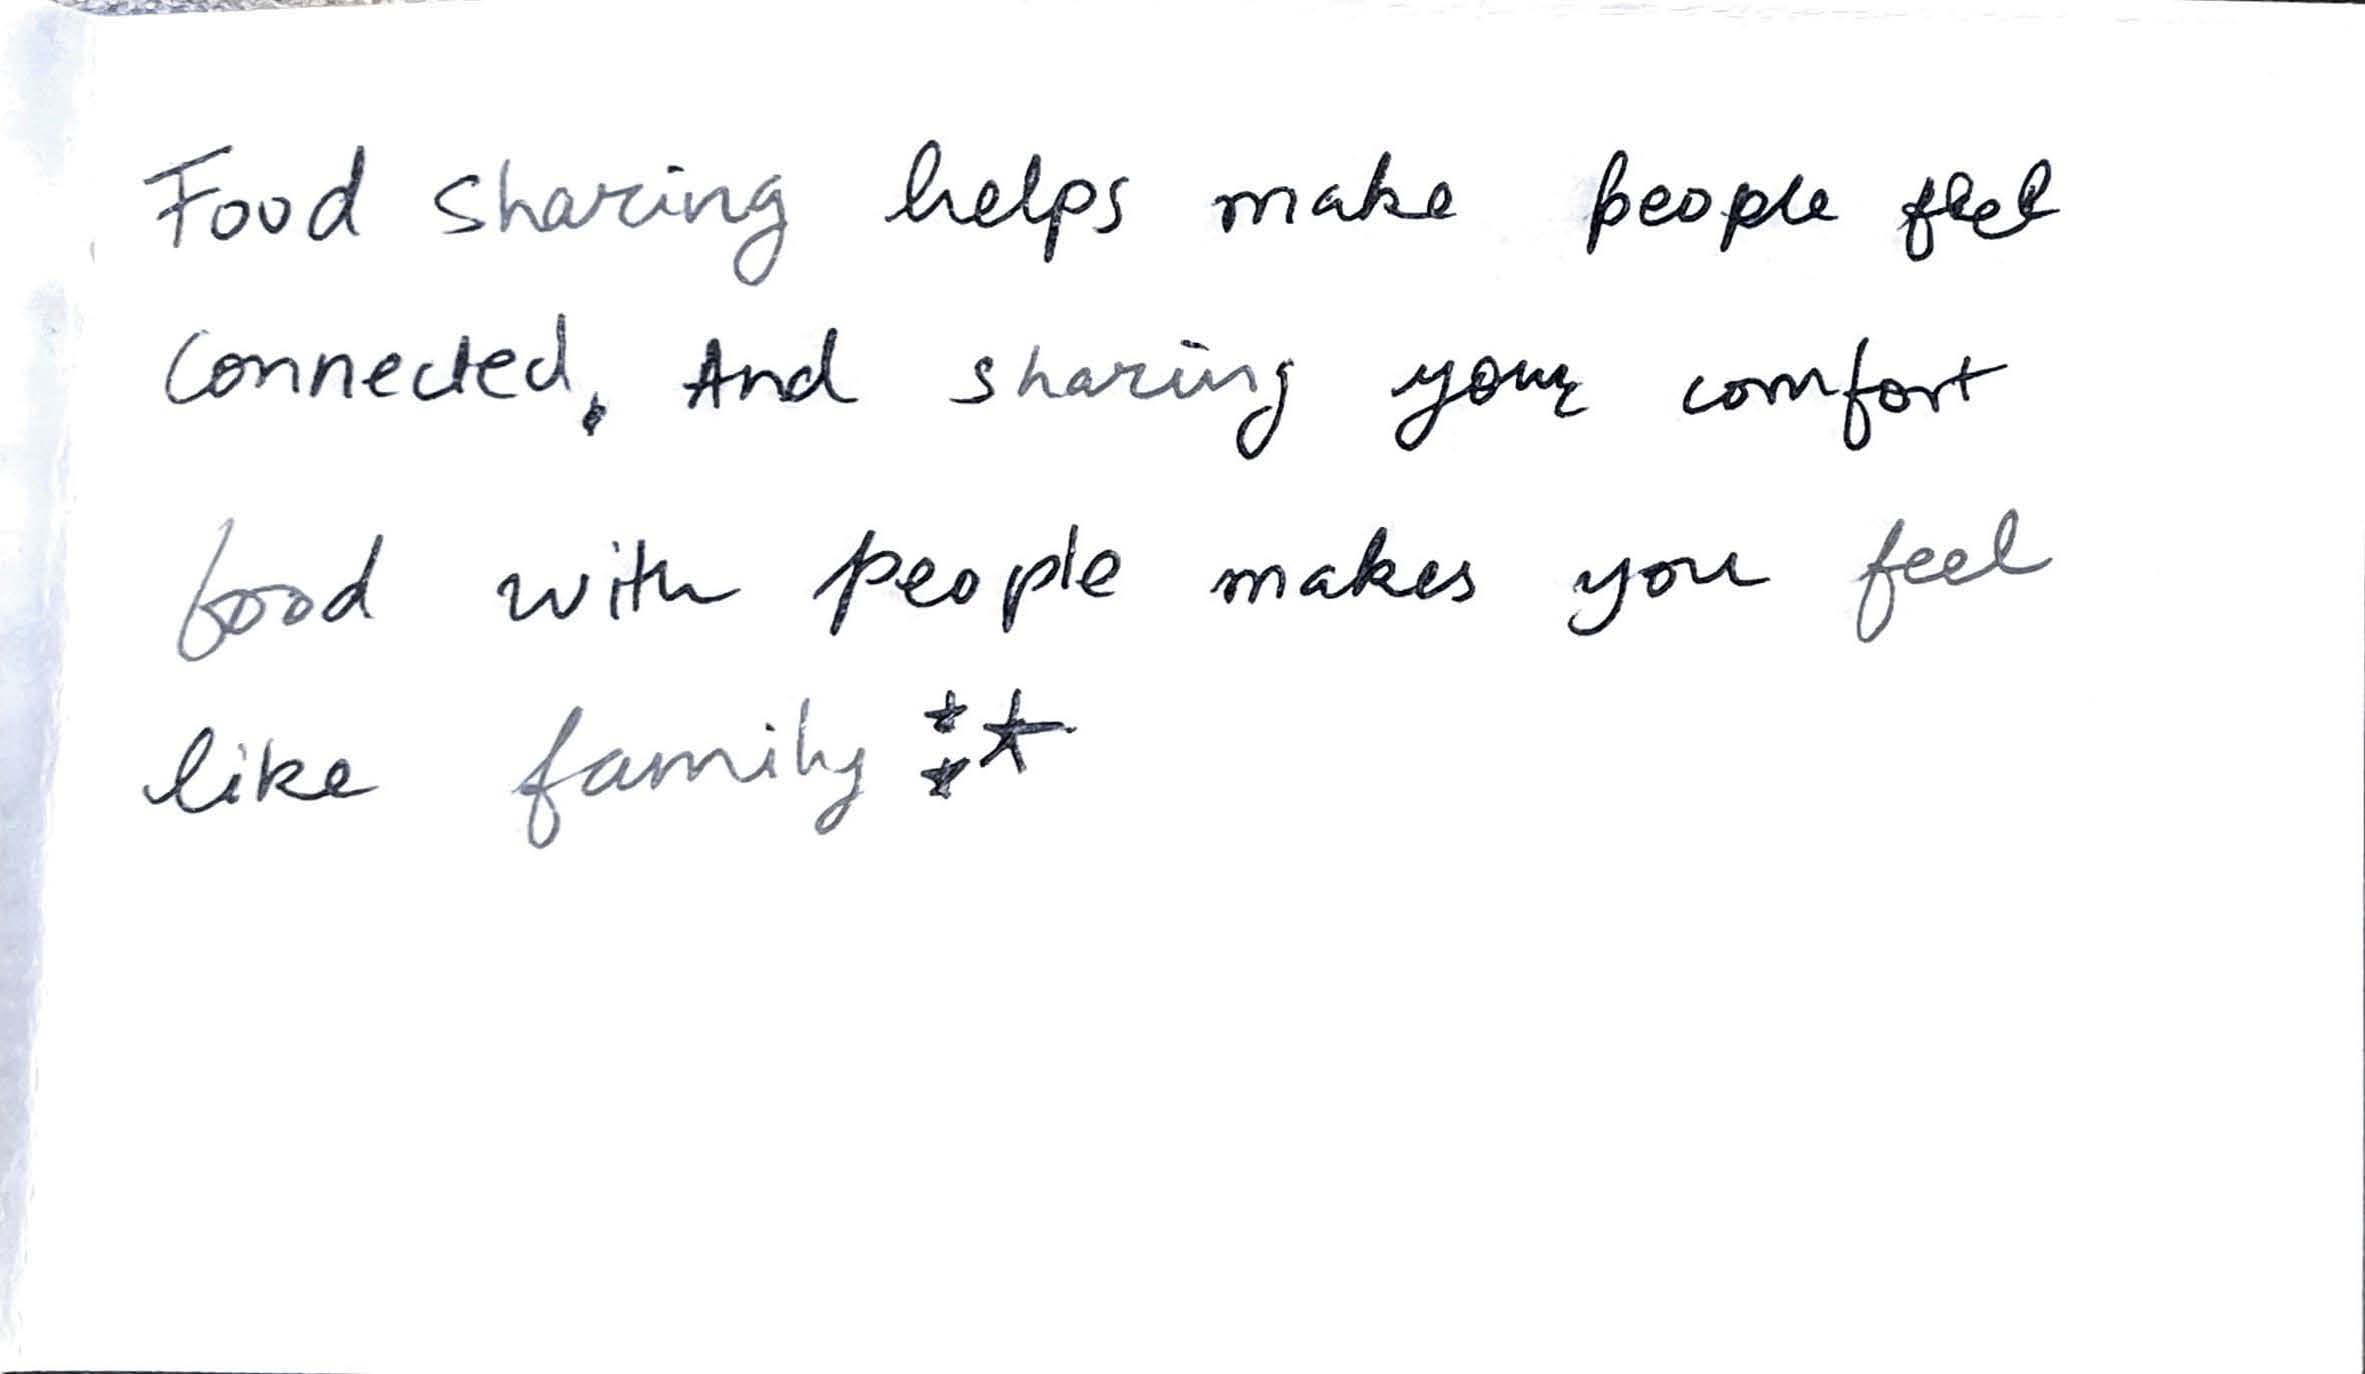 Food sharing helps make people feel
Connected. And sharing your comfort
food with people makes you feel
like family